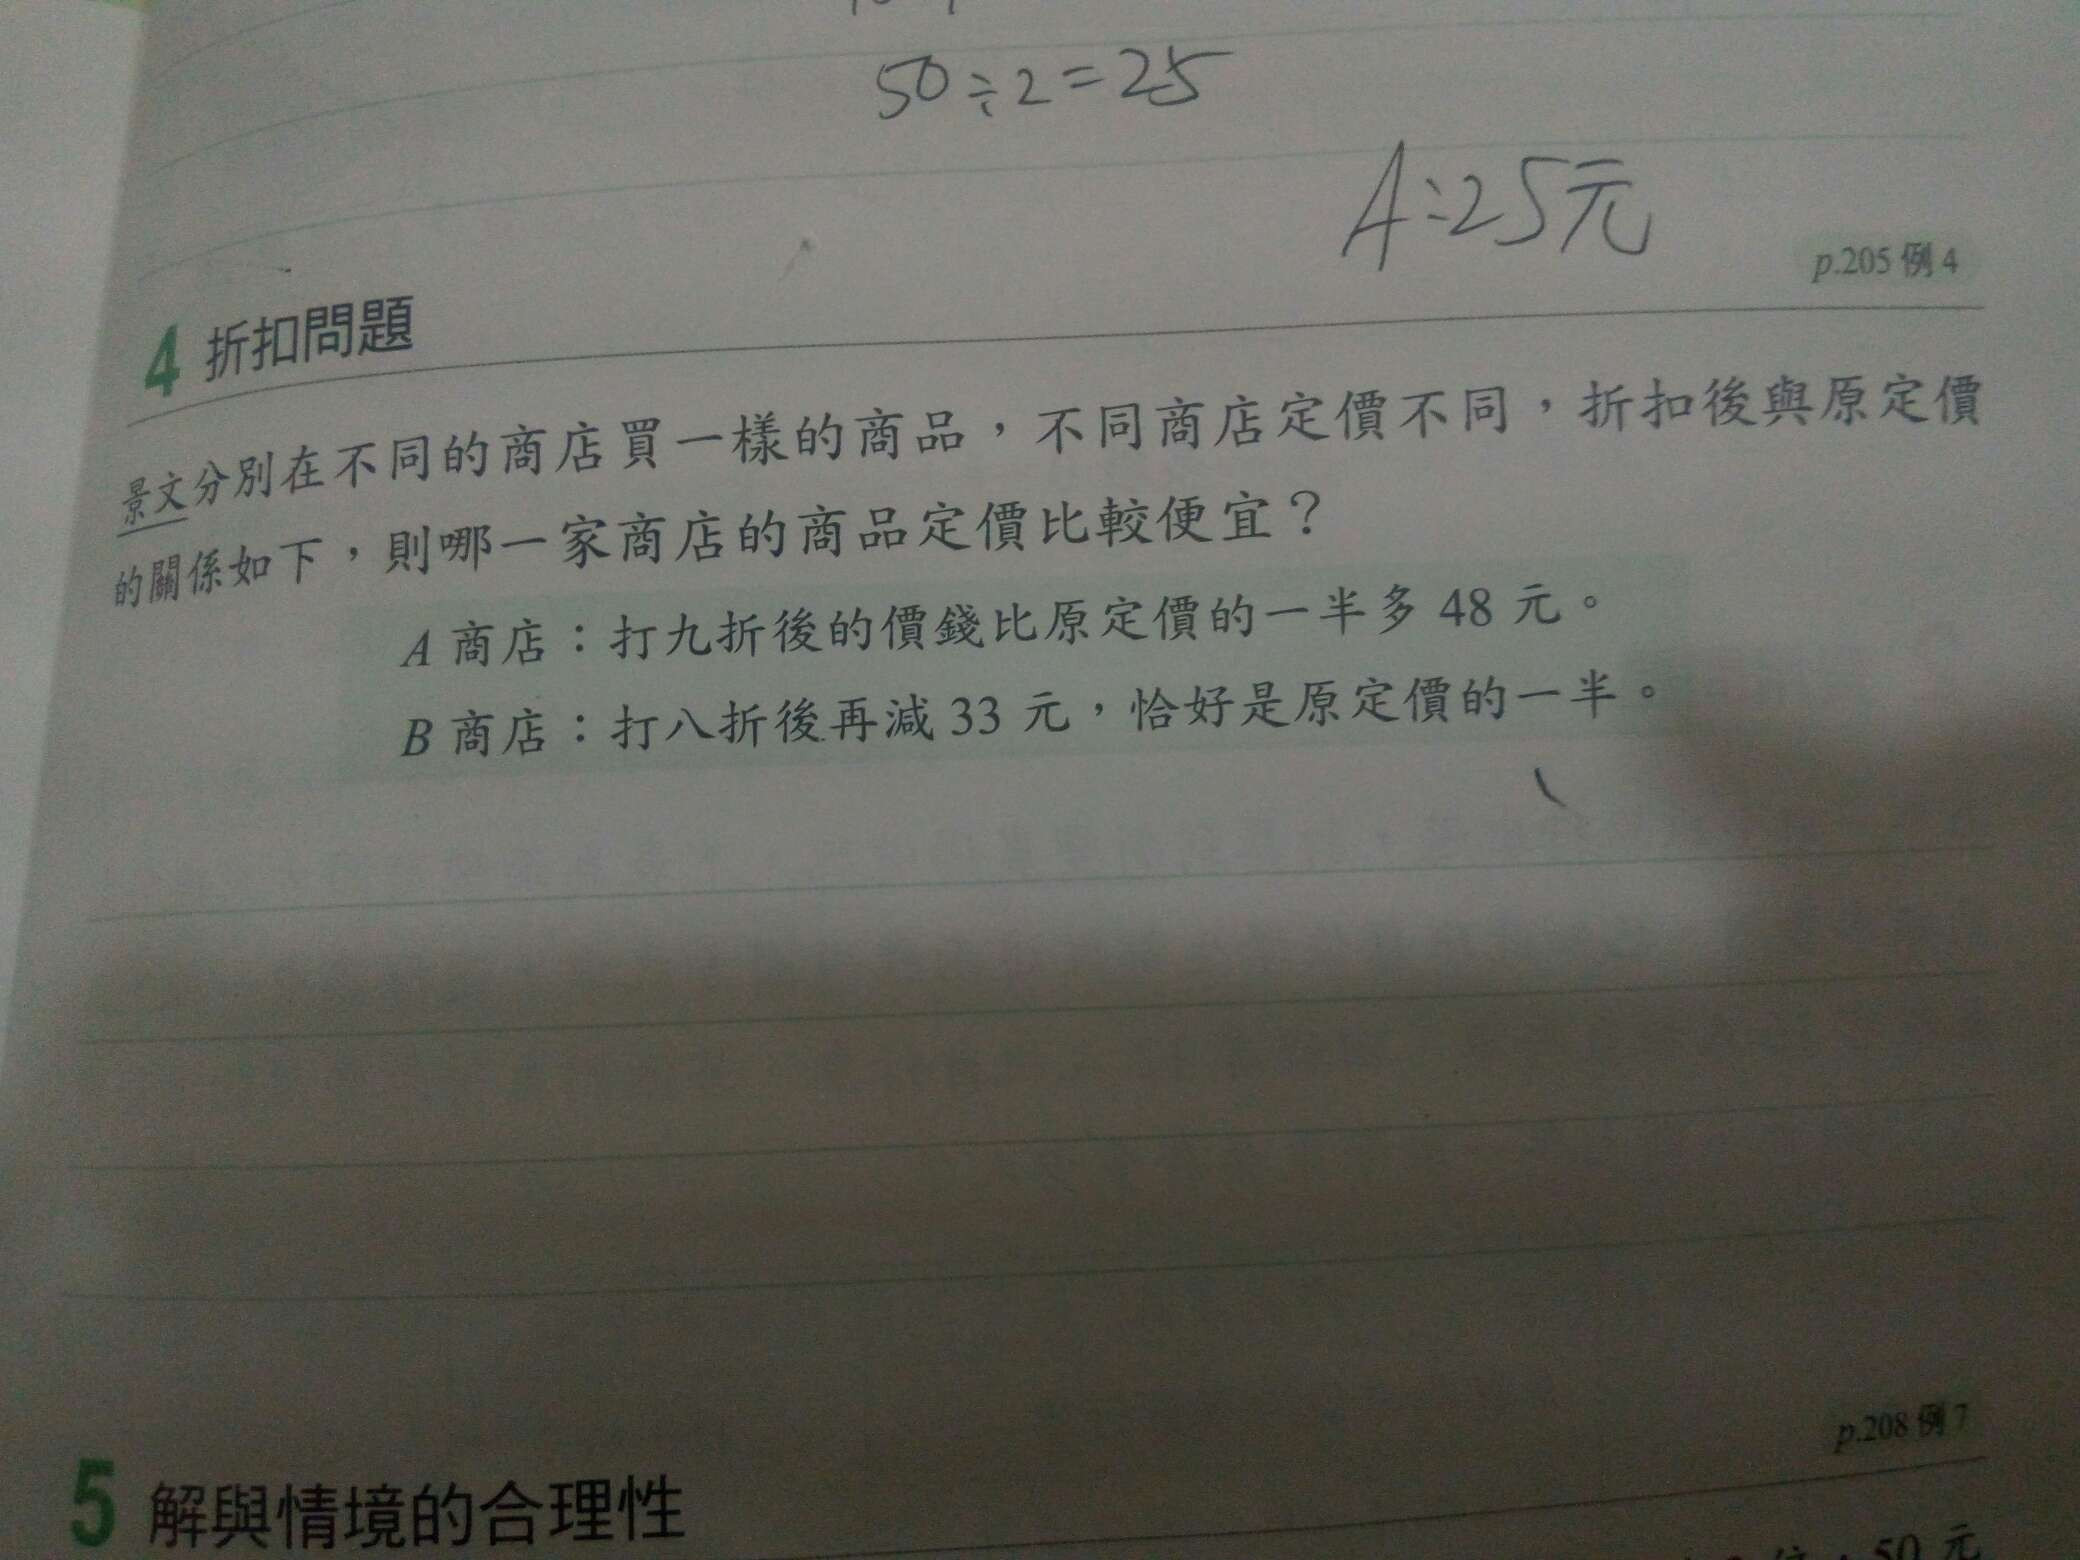 50÷2=25
A:25元
p.205 例 4
4 折扣問題
景文分別在不同的商店買一樣的商品，不同商店定價不同，折扣後與原定價
的關係如下，則哪一家商店的商品定價比較便宜？
A 商店：打九折後的價錢比原定價的一半多 48 元。
B 商店：打八折後再減 33 元，恰好是原定價的一半。
p.208 例 7
5 解與情境的合理性
50 元